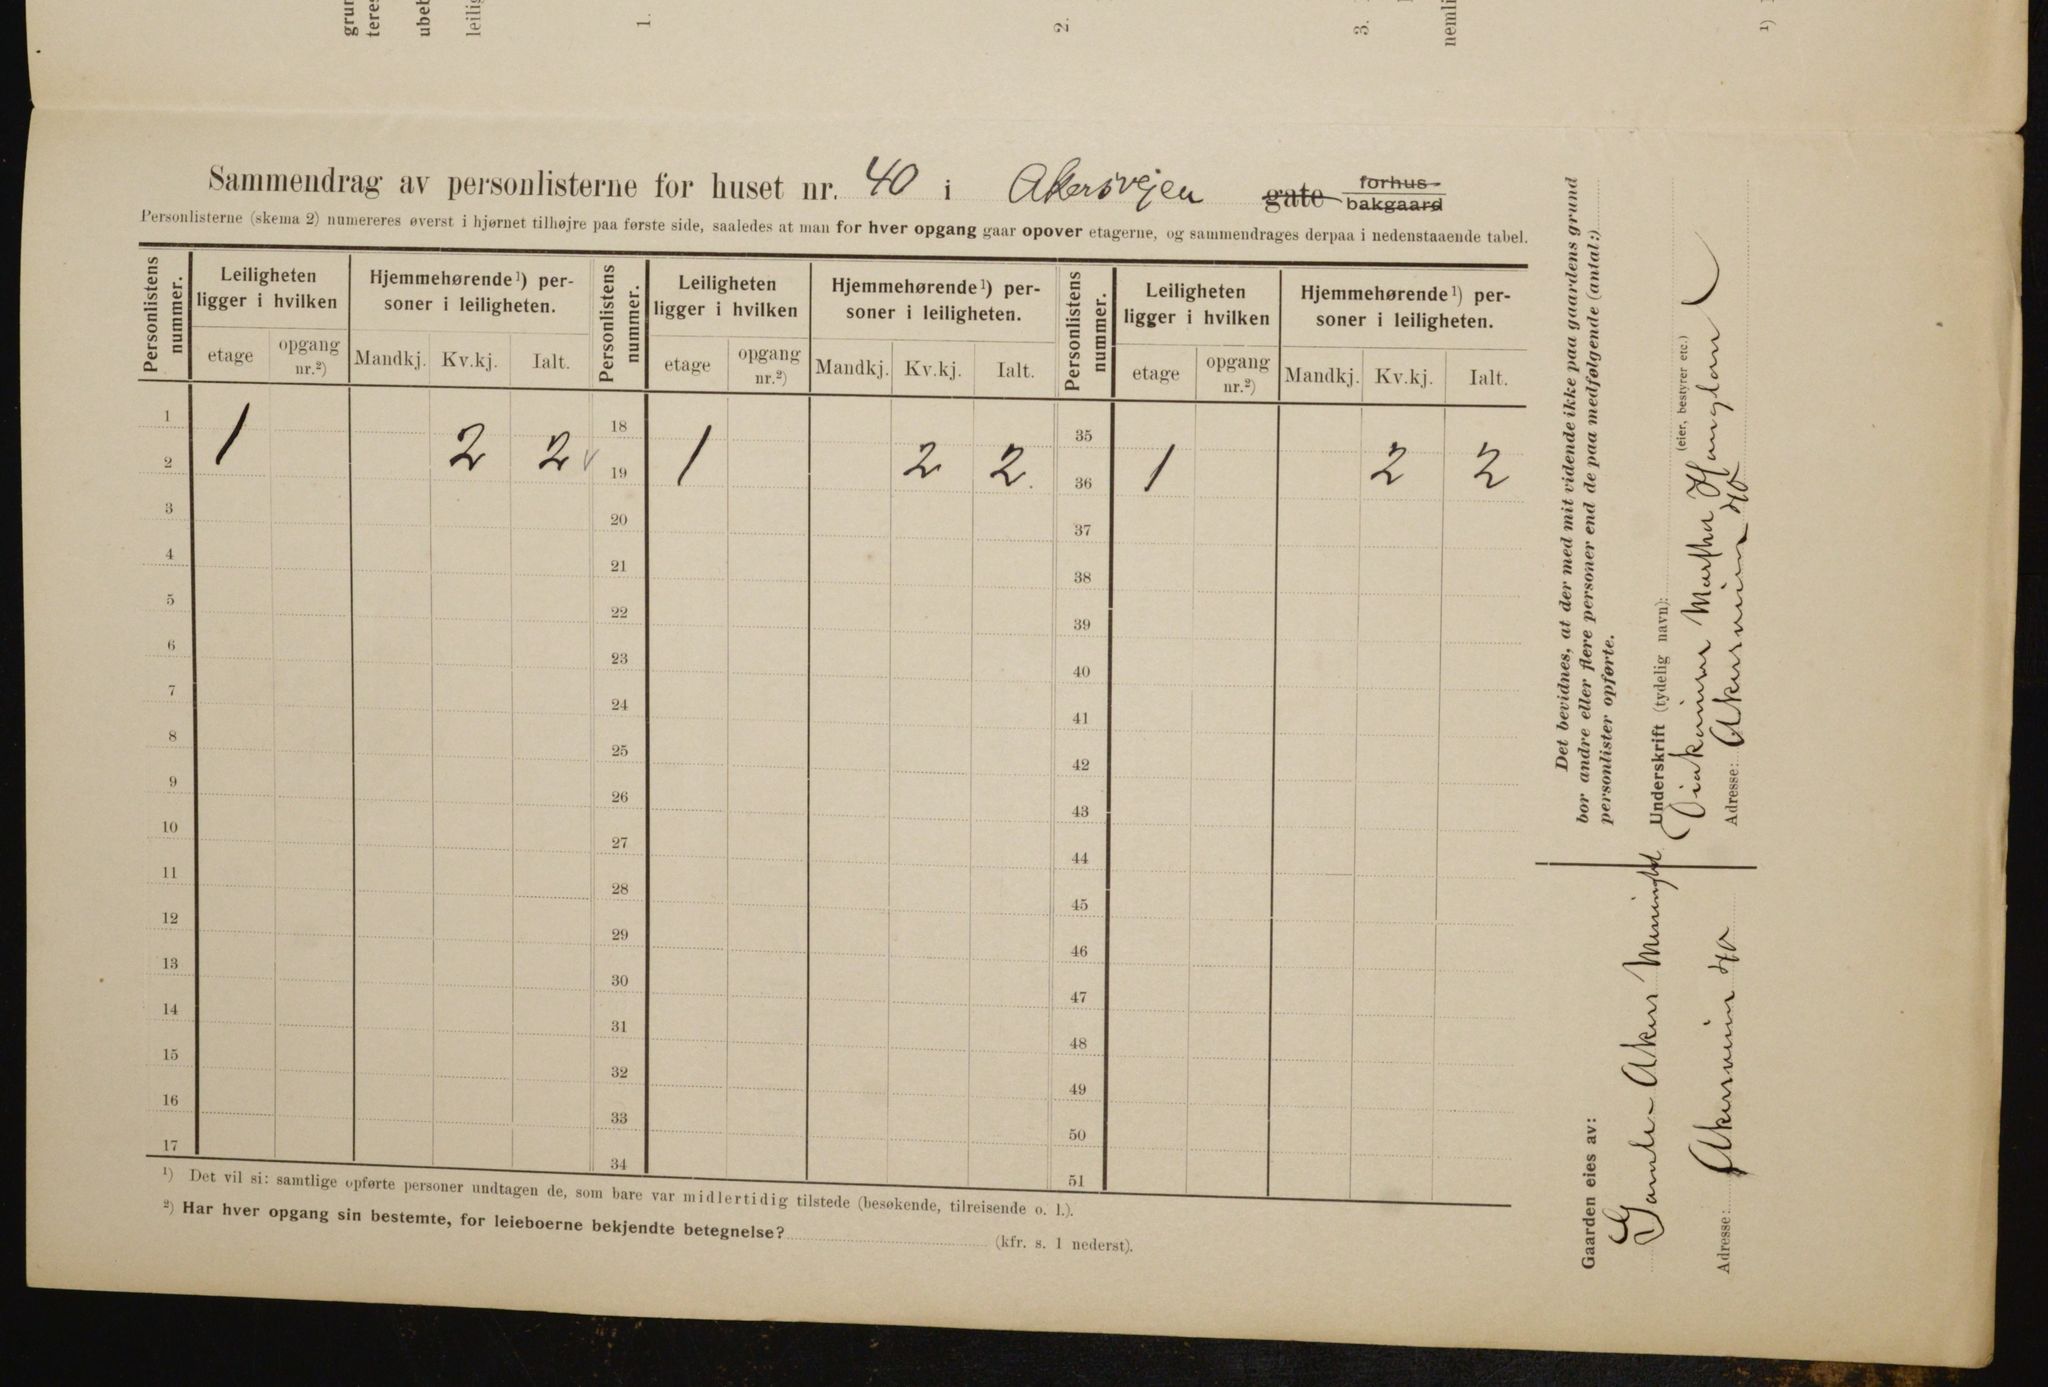 grun
teres
ubeb
leilig
1.
2.
3.
nemli
¹)
Sammendrag av personlisterne for huset nr. 40 i Akersvejen gate forhus bakgaard
Personlisterne (skema 2) numereres øverst i hjørnet tilhøjre paa første side, saaledes at man for hver opgang gaar opover etagerne, og sammendrages derpaa i nedenstaaende tabel.
Personlistens nummer. Leiligheten ligger i hvilken Hjemmehørende¹) personer i leiligheten. Personlistens nummer. Leiligheten ligger i hvilken Hjemmehørende¹) personer i leiligheten. Personlistens nummer. Leiligheten ligger i hvilken Hjemmehørende¹) personer i leiligheten.
etage opgang nr.²) Mandkj. Kv.kj. Ialt. etage opgang nr.²) Mandkj. Kv.kj. Ialt. etage opgang nr.²) Mandkj. Kv.kj. Ialt.
1 18 35
1 2 2 1 2 2 1 2 2
2 19 36
3 20 37
4 21 38
5 22 39
6 23 40
7 24 41
8 25 42
9 26 43
10 27 44
11 28 45
12 29 46
13 30 47
14 31 48
15 32 49
16 33 50
17 34 51
¹) Det vil si: samtlige opførte personer undtagen de, som bare var midlertidig tilstede (besøkende, tilreisende o. l.).
²) Har hver opgang sin bestemte, for leieboerne bekjendte betegnelse? (kfr. s. 1 nederst).
Det bevidnes, at der med mit vidende ikke paa gaardens grund
bor andre eller flere personer end de paa medfølgende (antal:)
personlister opførte.
Underskrift (tydelig navn): (eier, bestyrer etc.)
Diakonisse Martha Haugland
Adresse: Akersveien 40
Gaarden eies av:
Gamle Aker Menighed
Adresse: Akersveien 40